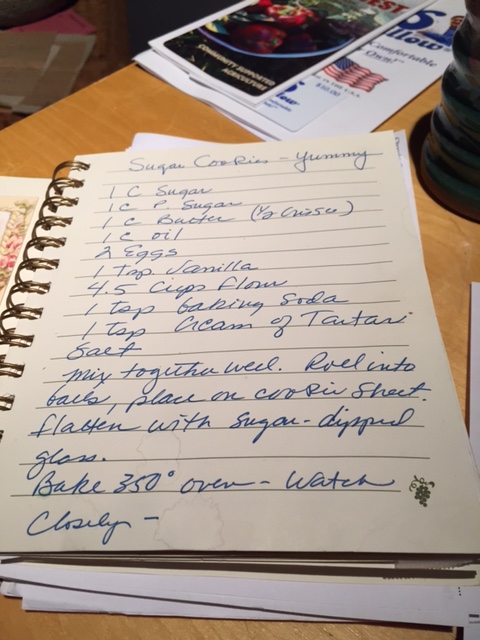 EST
COMMUNITY SUPPORTED
AGRICULTURE
S
illow
Comfortable
Own!"
IN THE U.S.A.
$10.00
Sugar Cookies - Yummy
1 C Sugar
1 C P. Sugar
1 C Butter (1/2 Crisco)
1 C oil
2 Eggs
1 Tsp. Vanilla
4.5 Cups Flour
1 tsp baking Soda
1 Tsp Cream of Tartar
Salt
Mix together well. Roll into
balls, place on cookie sheet.
flatten with sugar-dipped
glass.
Bake 350° oven - Watch
Closely -